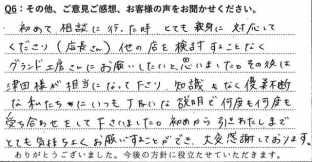 Q6：その他、ご意見ご感想、お客様の声をお聞かせください。
初めて相談に行った時とても親身に対応して
くださり（店長さん）他の店を検討することなく
グランド工房さんにお願いしたいと思いました。その後は
津田様が担当になって下さり、知識もなく優柔不断
な私たちにいつも丁ねいな説明で何度も何度も
打ち合わせをして下さいました。初めから引きわたしまで
とても気持ちよくお願いすることができ、大変感謝しております。
ありがとうございました。今後の方針に役立たせていただきます。